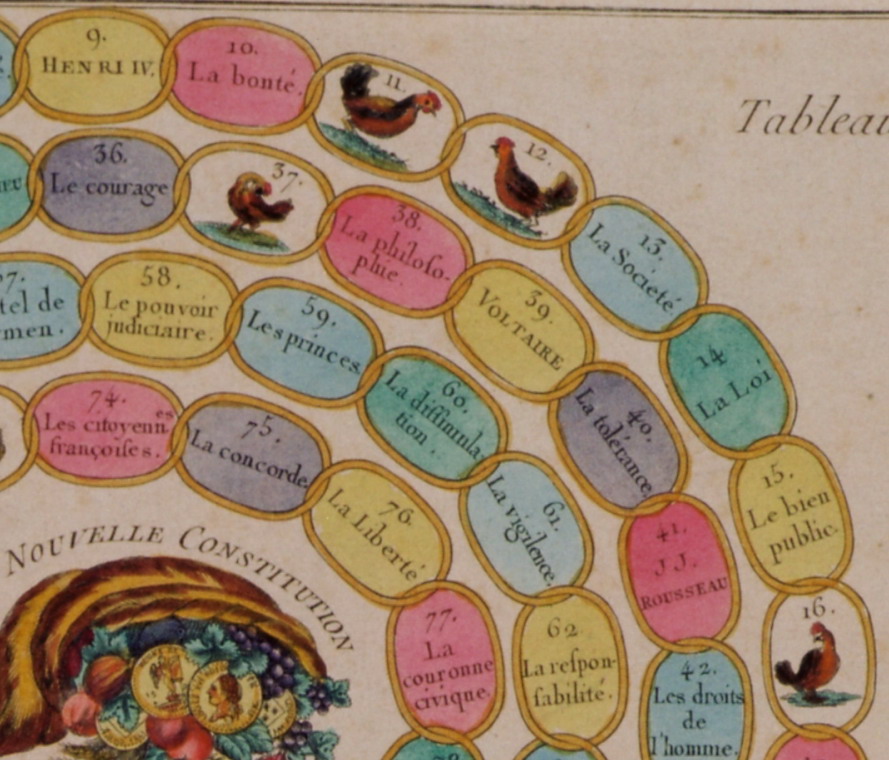 9.
HENRI IV.
10.
La bonté.
11.
12.
13.
La Société
14
La Loi
15.
Le bien
public.
16.
36.
Le courage
37.
38.
La philoſo-
phie.
39.
VOLTAIRE
40.
La tolérance.
41.
J.J.
ROUSSEAU
42.
Les droits
de
l'homme.
7.
tel de
men.
58.
Le pouvoir
judiciaire.
59.
Les princes
60.
La diſſimula-
tion.
61.
La vigilence.
62
La reſpon-
ſabilité.
74.
Les citoyennes
françoiſes.
75.
La concorde
76.
La Liberté
77.
La
couronne
civique.
78
NOUVELLE CONSTITUTION
Tableau